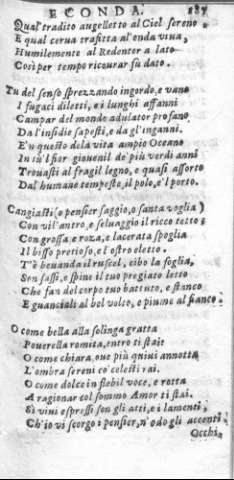 ECONDA. 187
Qual tradito augelletto al Ciel sereno
E qual cerua trafitta al'onda viua,
Humilemente al Redentor a lato
Così per tempo ricourar su dato.
Tu del senso sprezzando ingordo, e vano
I fugaci diletti, e i lunghi affanni
Campar del mondo adulator profano
Da l'insidie sapesti, e da gl'inganni.
E'n questo de la vita ampio Oceano
In sù'l fior giouenil de' più verdi anni
Trouasti al fragil legno, e quasi assorto
Dal'humane tempeste, il polo, e'l porto.
Cangiasti (o pensier saggio, o santa voglia)
Con vil'antro, e seluaggio il ricco tetto;
Con grossa, e roza, e lacerata spoglia
Il bisso pretioso, e l'ostro eletto.
T'è beuanda il ruscel, cibo la foglia,
Son sassi, e spine il tuo pregiato letto
Che fan del corpo tuo battuto, e stanco
E guanciali al bel volto, e piume al fianco.
O come bella alla solinga grotta
Pouerella romita, entro ti stai?
O come chiara, oue più quiui annotta
L'ombra sereni co' celesti rai.
O come dolce in flebil voce, e rotta
A ragionar col sommo Amor ti stai.
Sì viui espressi son gli atti, e i lamenti,
Ch'io vi scorgo i pensier, n'odo gli accenti.
Occhi,